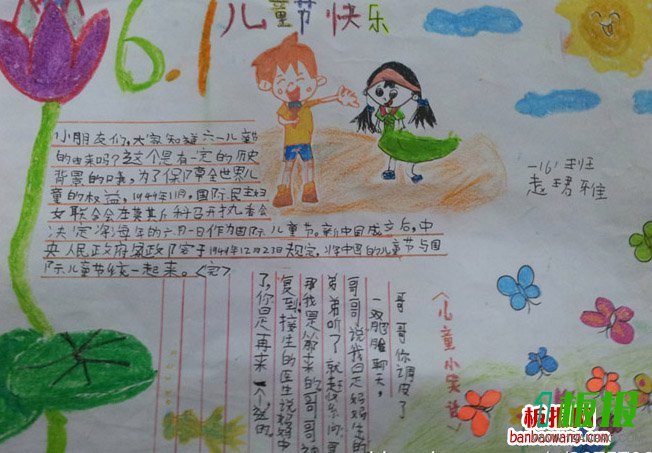 6.1儿童节快乐
小朋友们,大家知道六一儿童节
的由来吗?这个是有一定的历史
背景的哦,为了保障全世界儿
童的权益,1949年11月,国际民主妇
女联合会在莫其斯科召开执九委会
决定深海年的六月一日作为国际儿童节。新中国成立后,中
央人民政府家政院客于1949年12月23日规定,将中国的儿童节与国
际儿童节统一起来。<完>
一(6)班
赵珺雅
<儿童小笑话>
哥哥你调皮了
一双肥胖聊天,
哥哥说我是妈妈生的
弟弟听了就赶紧问哥
那我是从哪来的哥哥
复到接生的医生说妈妈中
了,你是再来一个送的
板报
板报网
banbaowang.com